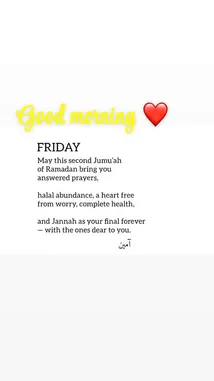 Good morning ❤️
FRIDAY
May this second Jumu'ah
of Ramadan bring you
answered prayers,
halal abundance, a heart free
from worry, complete health,
and Jannah as your final forever
— with the ones dear to you.
آمين